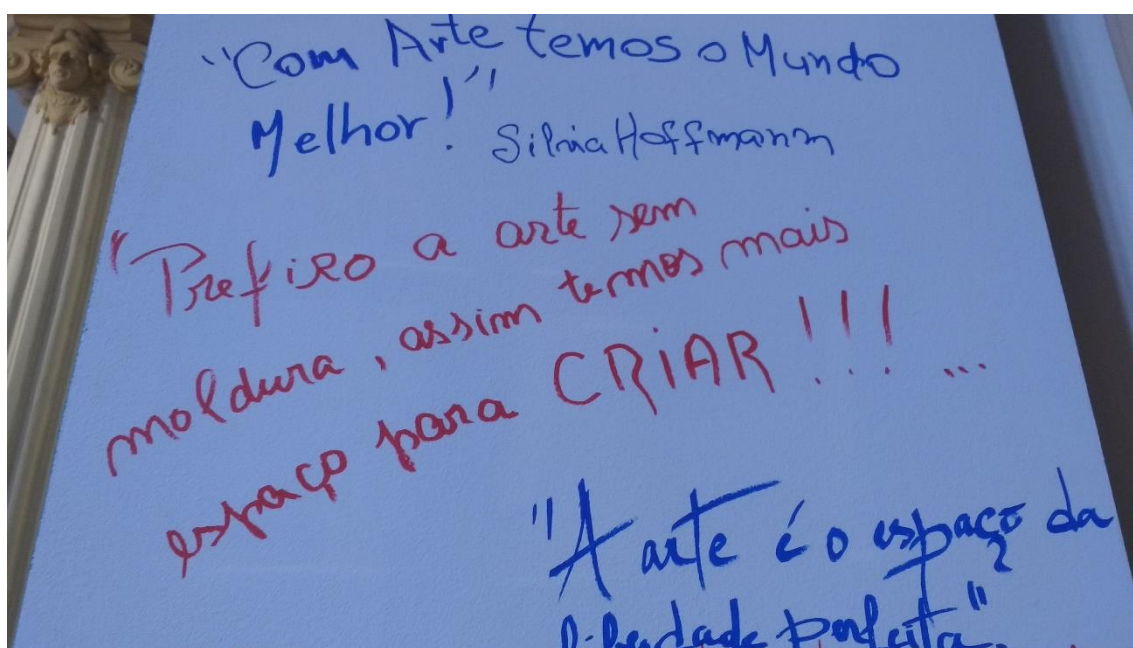 "Com Arte temos o Mundo
Melhor!" Silvia Hoffmann
"Prefiro a arte sem
moldura, assim temos mais
espaço para CRiAR!!!...
"A arte é o espaço da
liberdade perfeita".